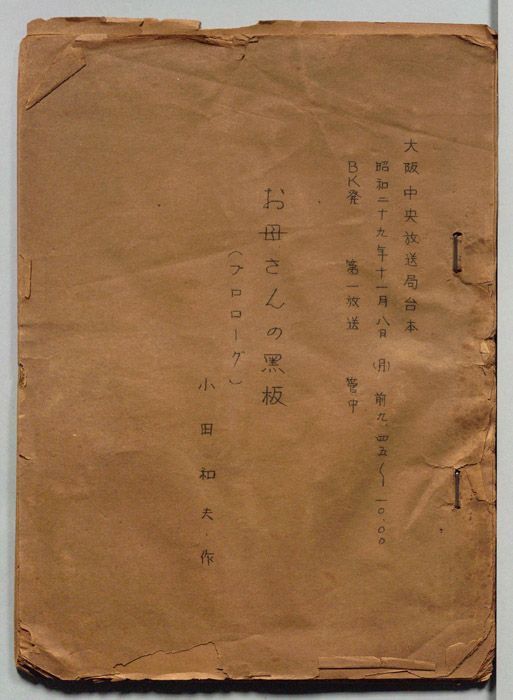 大阪中央放送局台本
昭和二十九年十一月八日（月） 前九.四五〜一〇.〇〇
BK発 第一放送 管中
お母さんの黑板
（プロローグ）
小田和夫.作